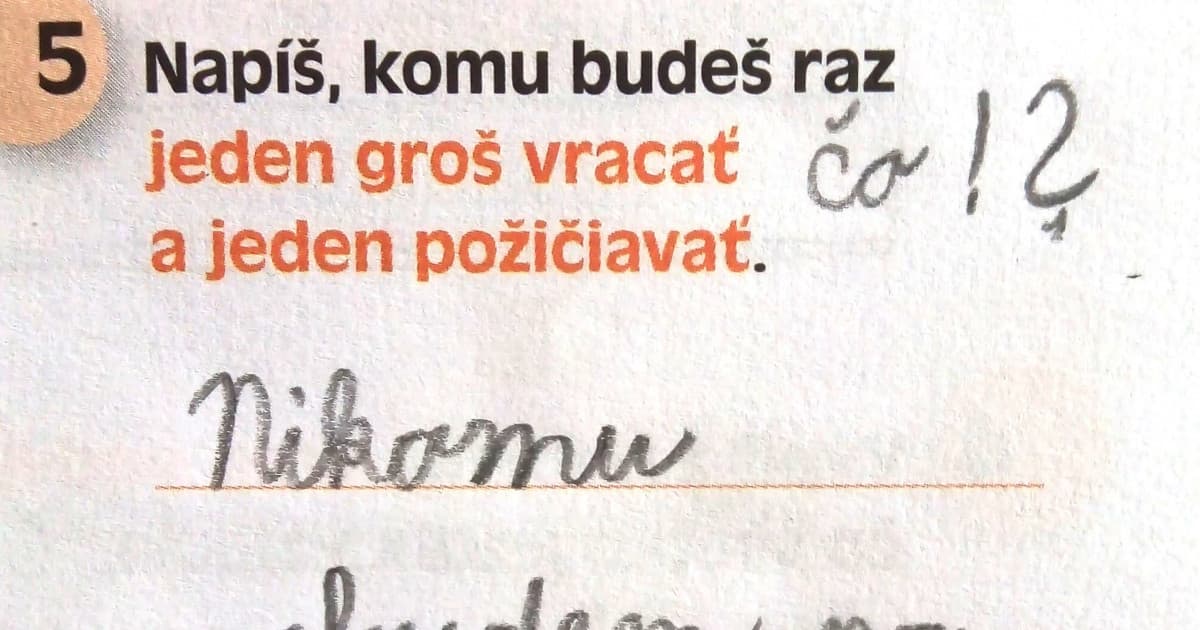 5 Napíš, komu budeš raz
jeden groš vracať čo!?
a jeden požičiavať.
Nikomu